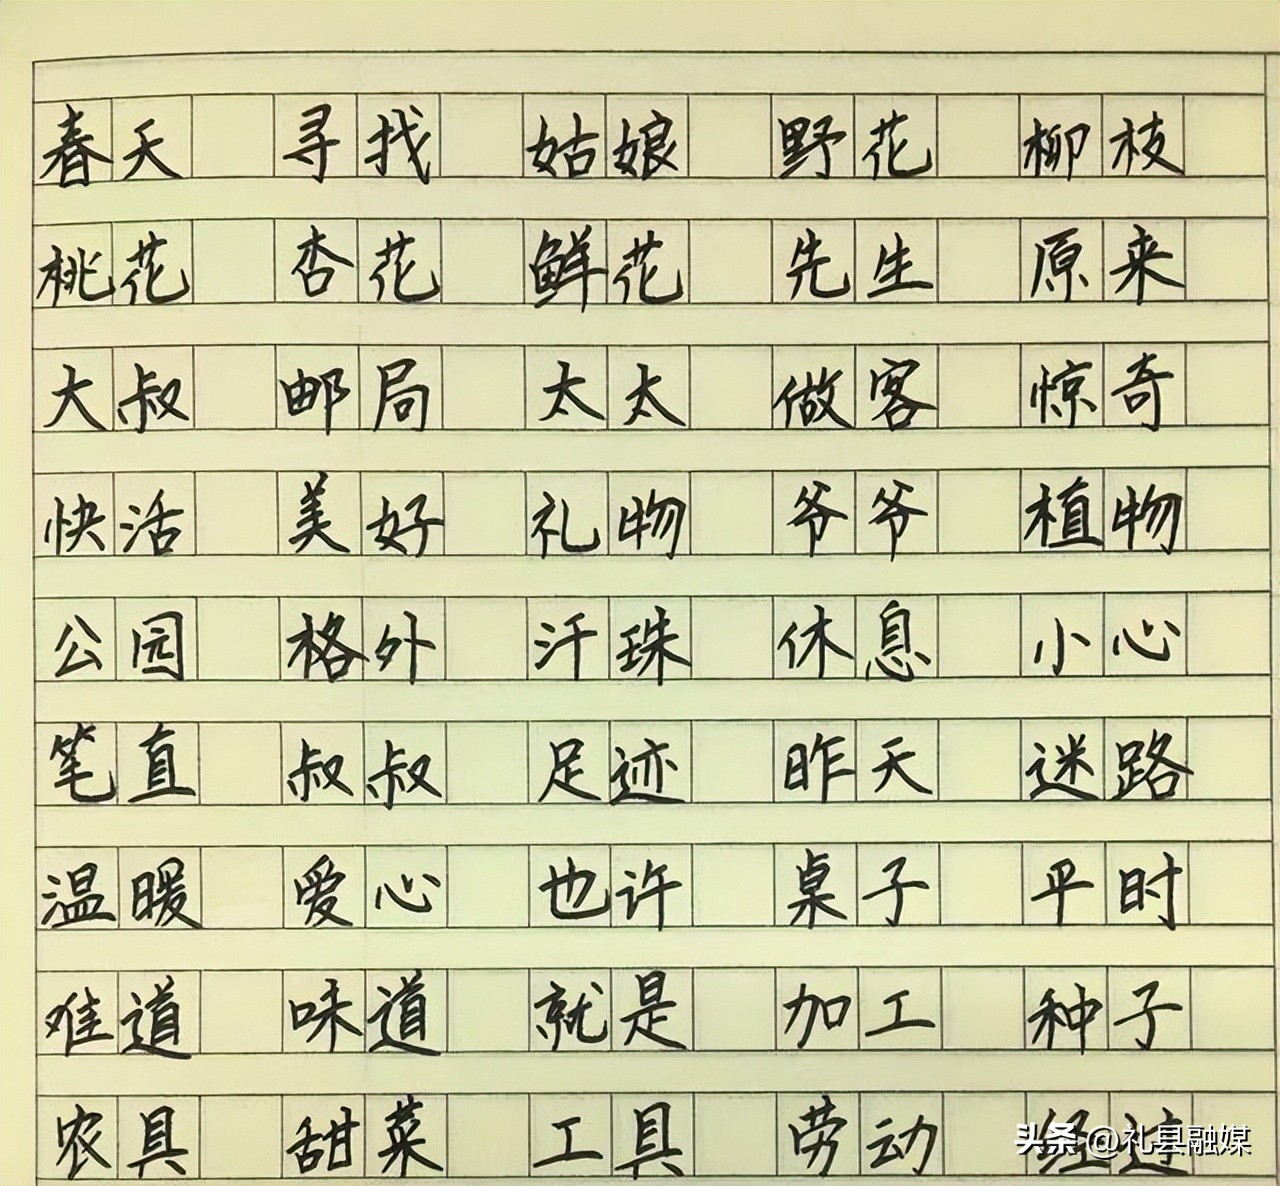 春天 寻找 姑娘 野花 柳枝
桃花 杏花 鲜花 先生 原来
大叔 邮局 太太 做客 惊奇
快活 美好 礼物 爷爷 植物
公园 格外 汗珠 休息 小心
笔直 叔叔 足迹 昨天 迷路
温暖 爱心 也许 桌子 平时
难道 味道 就是 加工 种子
农具 甜菜 工具 劳动 经过
头条 @礼县融媒